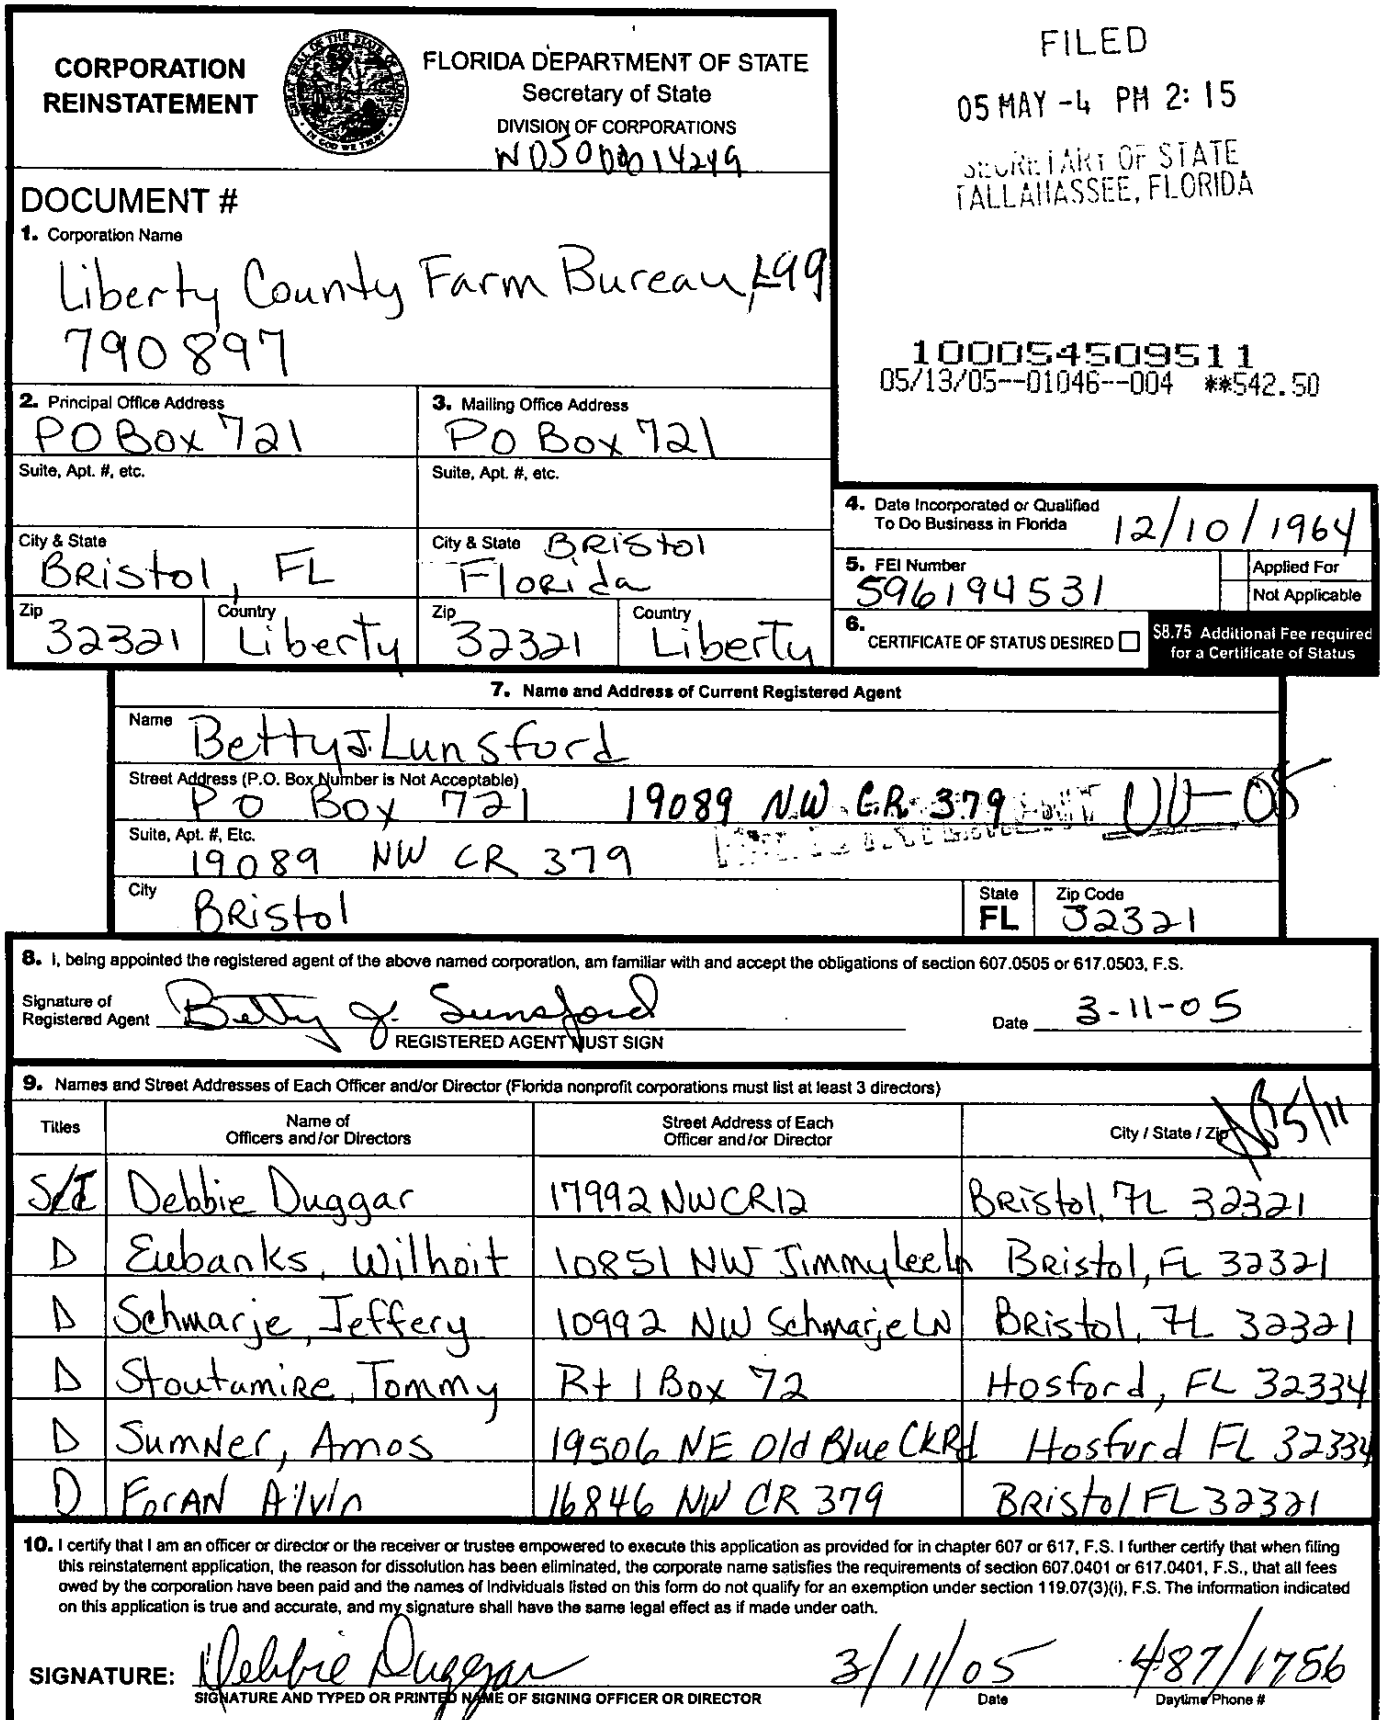 CORPORATION
REINSTATEMENT
FLORIDA DEPARTMENT OF STATE
Secretary of State
DIVISION OF CORPORATIONS
W05000014249
FILED
05 MAY -4 PM 2:15
SECRETARY OF STATE
TALLAHASSEE, FLORIDA
DOCUMENT #
1. Corporation Name
Liberty County Farm Bureau,
790897
100054509511
05/13/05--01046--004 **542.50
2. Principal Office Address
PO Box 721
Suite, Apt. #, etc.
City & State
Bristol, FL
Zip
32321
Country
Liberty
3. Mailing Office Address
PO Box 721
Suite, Apt. #, etc.
City & State Bristol
Florida
Zip
32321
Country
Liberty
4. Date Incorporated or Qualified
To Do Business in Florida 12/10/1964
5. FEI Number
596194531
Applied For
Not Applicable
6. CERTIFICATE OF STATUS DESIRED
$8.75 Additional Fee required
for a Certificate of Status
7. Name and Address of Current Registered Agent
Name Betty J. Lunsford
Street Address (P.O. Box Number is Not Acceptable)
PO Box 721 19089 NW C.R. 379
Suite, Apt. #, Etc.
19089 NW CR 379
City Bristol
State
FL
Zip Code
32321
8. I, being appointed the registered agent of the above named corporation, am familiar with and accept the obligations of section 607.0505 or 617.0503, F.S.
Signature of
Registered Agent Betty J. Lunsford
Date 3-11-05
REGISTERED AGENT MUST SIGN
9. Names and Street Addresses of Each Officer and/or Director (Florida nonprofit corporations must list at least 3 directors)
Titles
Name of
Officers and/or Directors
Street Address of Each
Officer and/or Director
City / State / Zip
5/11
Debbie Duggar 17992 NW CR12 Bristol, FL 32321
D Eubanks, Wilhoit 10851 NW Jimmy Lee Ln Bristol, FL 32321
D Schmarje, Jeffery 10992 NW Schmarje LN Bristol, FL 32321
D Stoutamire, Tommy Rt 1 Box 72 Hosford, FL 32334
D Sumner, Amos 19506 NE Old Blue Ck Rd Hosford FL 32334
D Foran 16846 NW CR 379 Bristol FL 32321
10. I certify that I am an officer or director or the receiver or trustee empowered to execute this application as provided for in chapter 607 or 617, F.S. I further certify that when filing
this reinstatement application, the reason for dissolution has been eliminated, the corporate name satisfies the requirements of section 607.0401 or 617.0401, F.S., that all fees
owed by the corporation have been paid and the names of individuals listed on this form do not qualify for an exemption under section 119.07(3)(i), F.S. The information indicated
on this application is true and accurate, and my signature shall have the same legal effect as if made under oath.
SIGNATURE: Debbie Duggar 3/11/05 487/1756
SIGNATURE AND TYPED OR PRINTED NAME OF SIGNING OFFICER OR DIRECTOR
Date
Daytime Phone #